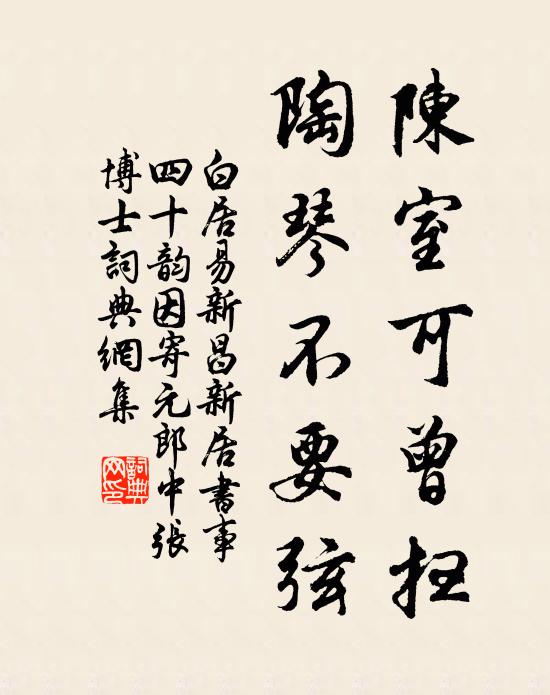 陳室可曾扫
陶琴不要弦
白居易新昌新居書事
四十韵因寄元郎中張
博士詞典網集
詞典
网印